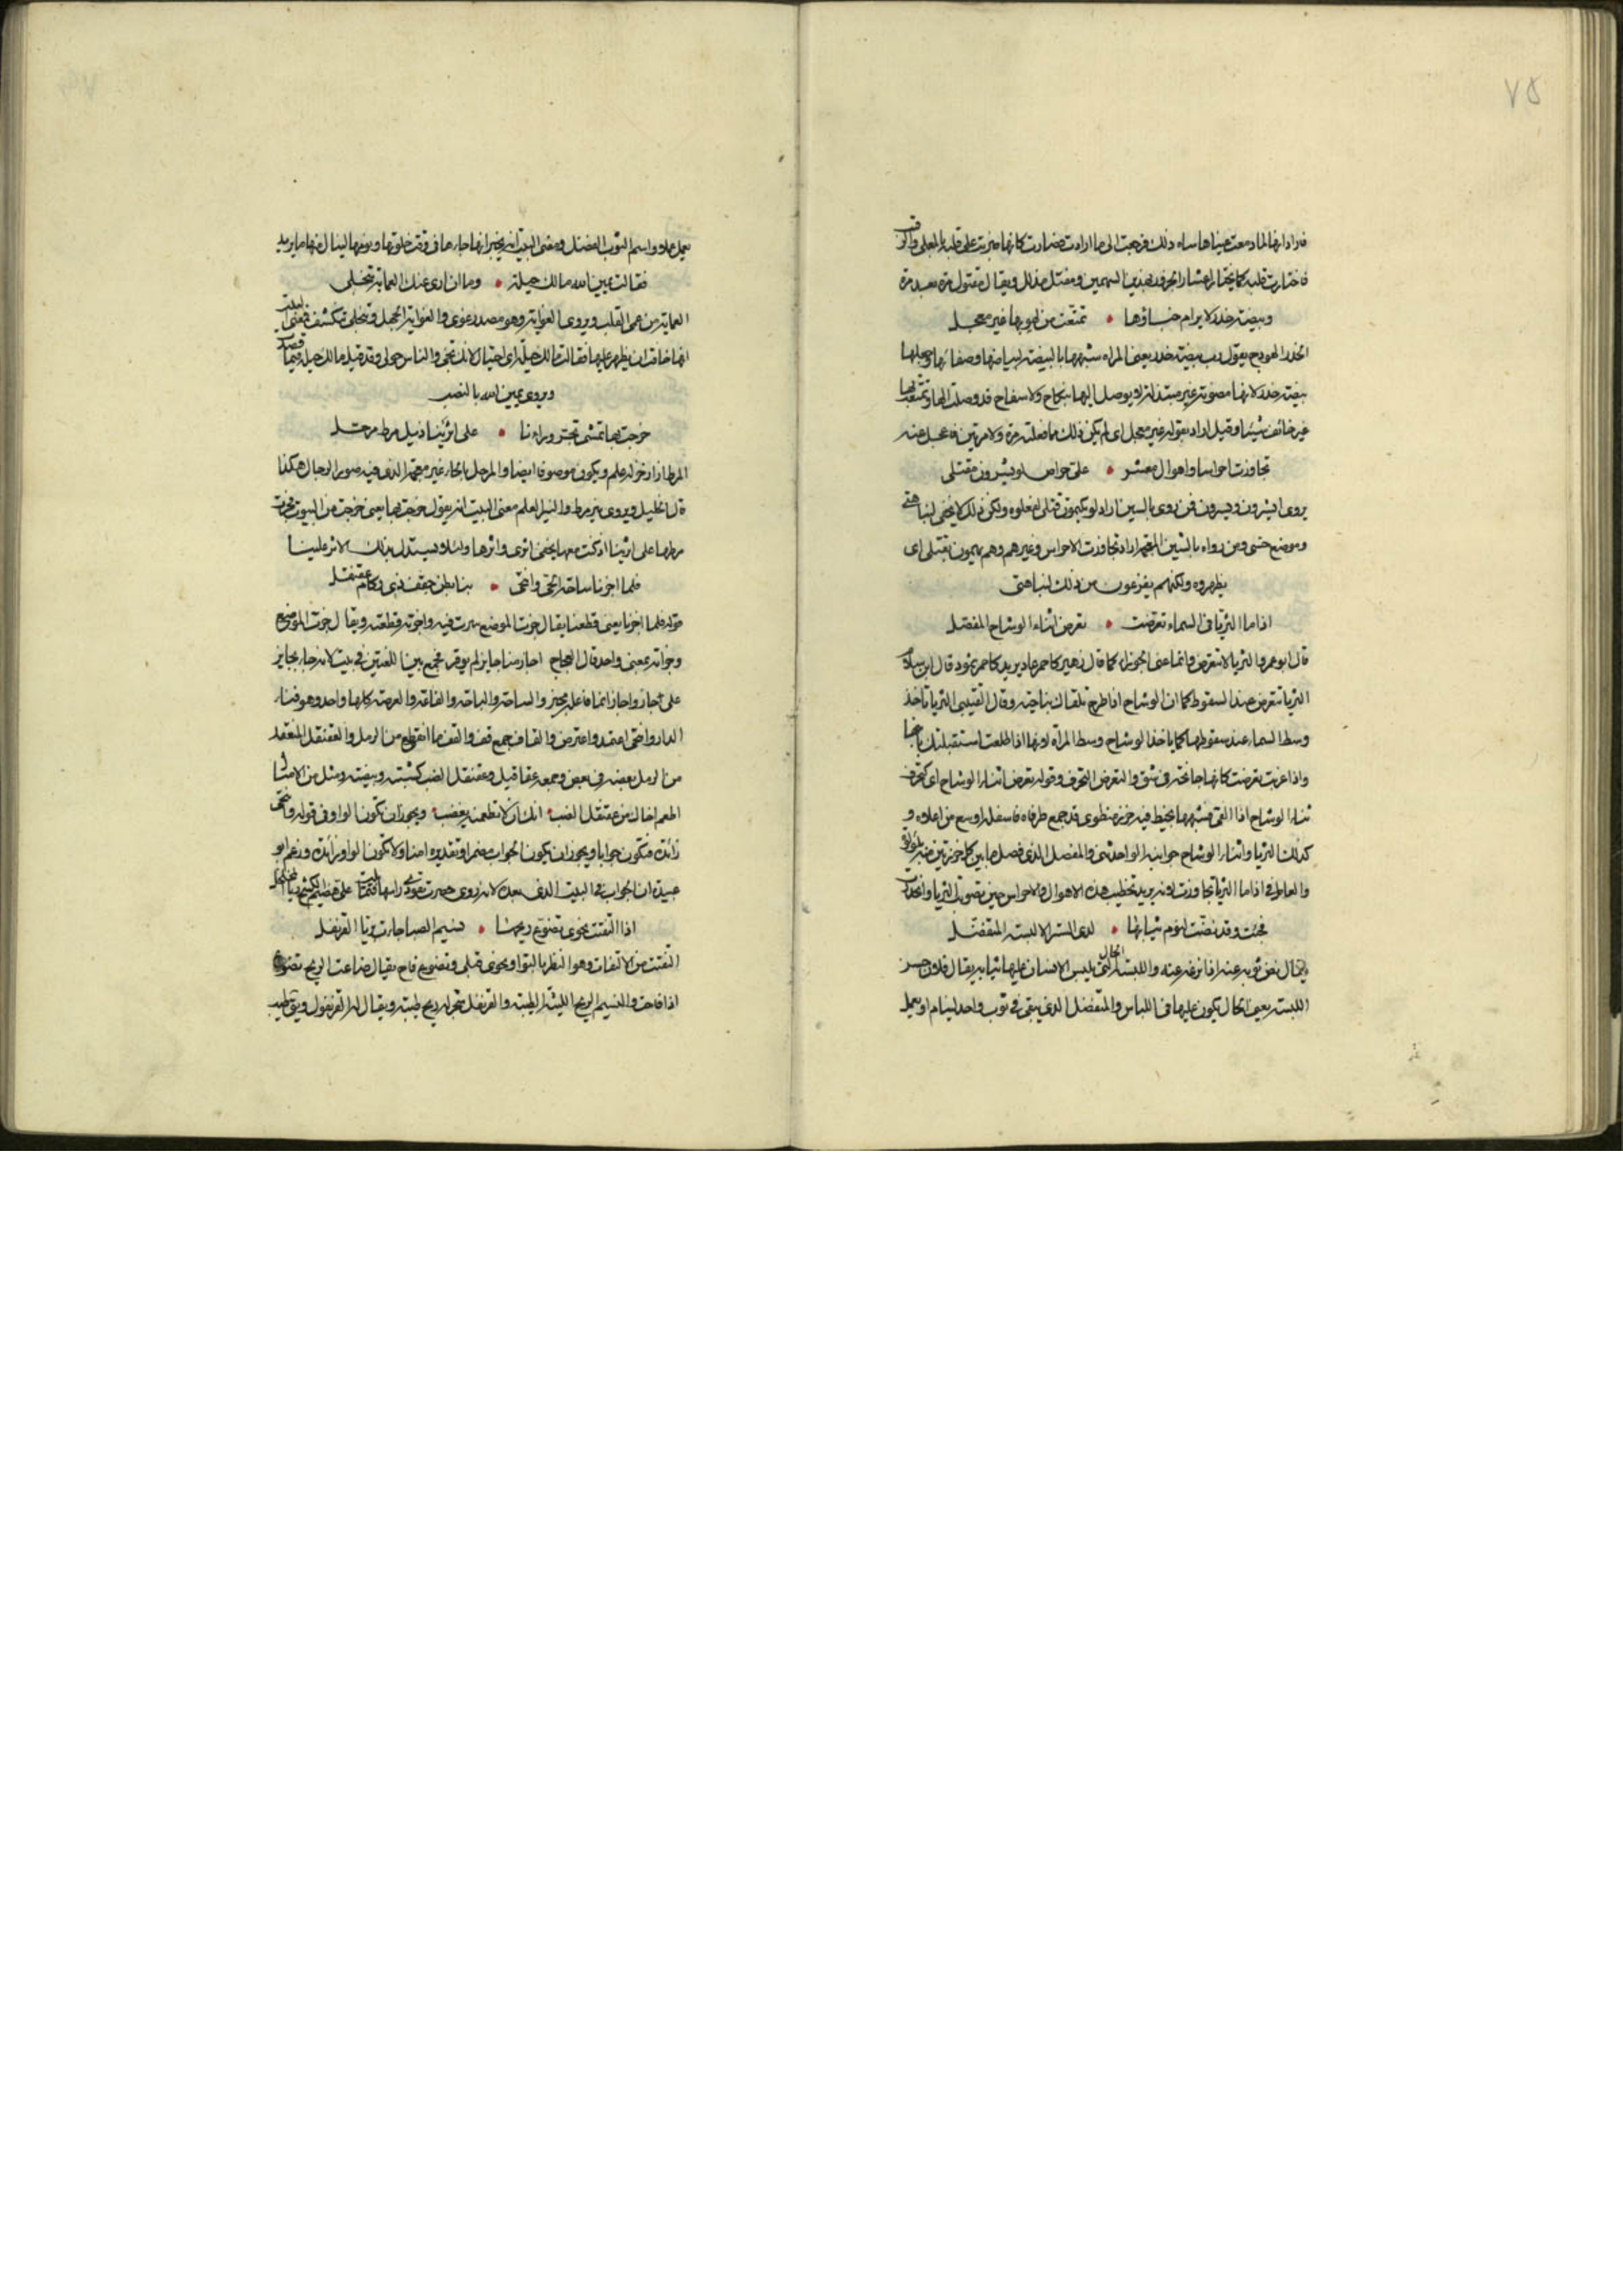 ٧٥
فاراد انها لما دمعت عيناها ساه ذلك فرجعت الى ما ارادت فصارت كانها ضربت على قلبه بالمعلى والرقيب
فاختارت قلبه كما يختار اعشار الجزور بهذين السهمين ومقتل مذلل ويقال مقتول مرة بعد مرة
وبيضة خدر لا يرام خباؤها • تمتعت من لهو بها غير معجل
الخدر الهودج يقول رب بيضة خدر يعنى المراه شبهها بالبيضة لبياضها وصفائها وجعلها
بيضة خدر لانها مصونة غير مبتذلة لا يوصل اليها بنكاح ولا سفاح قد وصلت اليها وتمتعت بها
غير خائف شيئا وقيل اراد بقوله غير معجل اى لم يكن ذلك مما فعلته مرة ولا مرتين فاعجل عنه
تجاوزت احراسا واهوال معشر • على حراص لو يشرون مقتلى
يروى يشرون ويسرون فمن روى بالسين اراد لو يكتمون قتلى لفعلوه ولكن ذلك لا يخفى لنباهتى
وموضع حسبى ومن رواه بالشين المعجمة اراد تجاوزت الاحراس وغيرهم وهم يهمون بقتلى اى
يظهروه ولكنهم يفزعون من ذلك لنباهتى
اذا ما الثريا فى السماء تعرضت • تعرض اثناء الوشاح المفصل
قال ابو عمرو الثريا لا تتعرض وانما عنى الجوزاء كما قال زهير كاحمر عاد يريد كاحمر ثمود قال ابن سلام
الثريا تتعرض عند السقوط كما ان الوشاح اذا طرح تلقاك بناحيته وقال القتيبى الثريا تاخذ
وسط السماء عند سقوطها كما ياخذ الوشاح وسط المرأه اولها اذا طلعت استقبلتك بانفها
واذا غربت تعرضت كانها جانحة فى شق والتعرض التحرف وقوله تعرض اثناء الوشاح اى كتحرف
اثناء الوشاح اذا التقى فشبهها بخيط فيه خرز منظوم قد جمع طرفاه فاسفله اوسع من اعلاه و
كذلك الثريا واثناء الوشاح جوانبه الواحد ثنى والمفصل الذى فصل ما بين كل خرزتين منه بلؤلؤة
والعامل فى اذا ما الثريا تجاوزت لانه يريد تخطيت هذه الاهوال والاحراس حين تصوبت الثريا وانحدرت
فجئت وقد نضت لنوم ثيابها • لدى الستر الا لبسة المتفضل
يقال نض ثوبه عنه اذا نزعه عنه واللبسة الحال التى يلبس الانسان عليها ثيابه يقال فلان حسن
اللبسة يعنى الحال يكون عليها فى اللباس والمتفضل الذى يبقى فى ثوب واحد لينام او يعمل
يعمل عملا واسم الثوب المفضل ومعنى البيت انه يخبر انها جاءها فى وقت خلوتها ونومها لينال منها ما يريد
فقالت يمين الله مالك حيلة • وما ان ارى عنك العماية تنجلى
العماية من عمى القلب ويروى الغواية وهو مصدر غوى والغواية الجهل وتنجلى تنكشف فمعنى البيت
انها خافت ان يظهر عليهما فقالت مالك حيلة اى احتيال لانك تجئ والناس حولى وقد قيل مالك حيلة فيما قصدت
ويروى يمين الله بالنصب
خرجت بها تمشى تجر وراءنا • على اثرينا ذيل مرط مرحل
المرط ازار خز له علم ويكون من صوف ايضا والمرحل بالحاء غير معجمة الذى فيه صور الرحال هكذا
قال الخليل ويروى نير مرط والنير العلم معنى البيت انه يقول خرجت بها يعنى خرجت من البيوت تجر
مرطها على اثرينا اذ كنت معها ليخفى اثرى واثرها ولئلا يستدل بذلك الاثر علينا
فلما اجزنا ساحة الحى وانتحى • بنا بطن حقف ذى ركام عقنقل
قوله فلما اجزنا يعنى قطعنا يقال جزت الموضع سرت فيه واجزته قطعته ويقال جزت الموضع
واجزته بمعنى واحد قال العجاج اجاز منا جايز لم يوقر فجمع بين اللغتين فى بيت لانه جاء بجايز
على اجاز واجاز انما فاعله مجيز والساحة والباحة والقاعة والعرصة كلها واحد وهو فناء
الدار وانتحى اعتمد واعترض والقفاف جمع قف والقف ما انقطع من الرمل والعقنقل المنعقد
من الرمل بعضه فى بعض وجمعه عقاقيل وعقنقل الضب كشيته وبيضته ومثل من الامثال
اطعم اخاك من عقنقل الضب • انك ان لا تطعمه يغضب • ويجوز ان تكون الواو فى قوله وانتحى
زائدة فتكون جوابا ويجوز ان يكون الجواب مضمرا وتقديره امنا ولا تكون الواو زائدة وزعم ابو
عبيدة ان الجواب فى البيت الذى بعده لانه روى هصرت بفودى راسها فتمايلت على هضيم الكشح ريا المخلخل
اذا التفتت نحوى تضوع ريحها • نسيم الصبا جاءت بريا القرنفل
التفتت من الالتفات وهو النظر بالتواء ونحوى قبلى وتضوع فاح يقال ضاعت الريح تضوع
اذا فاحت والنسيم الريح اللينة الطيبة والقرنفل شجر له ريح طيبة ويقال له القرنفول ويق طيب